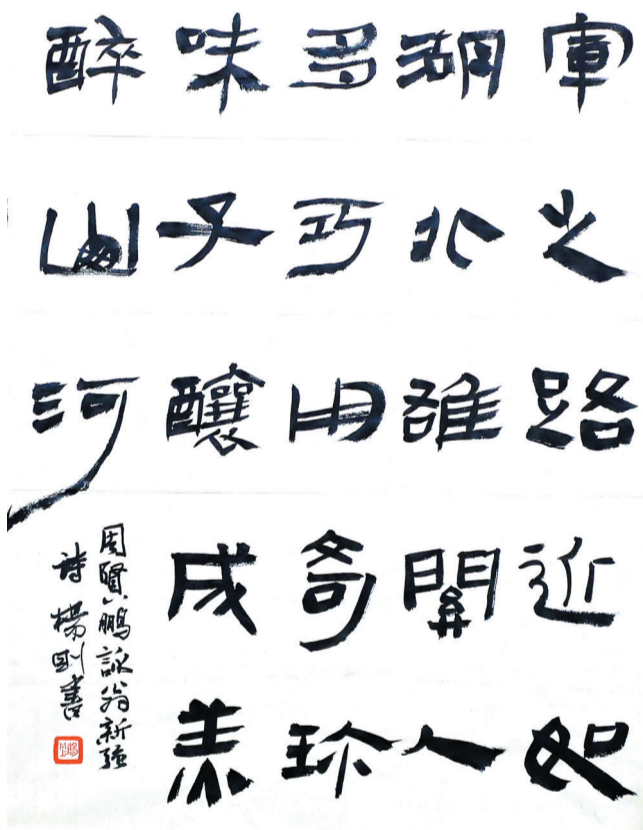 軍之路近如
湖北誰開人
多巧用奇珍
味子釀成羙
醉山河
周賢鵬詠翁新強
詩楊剛書